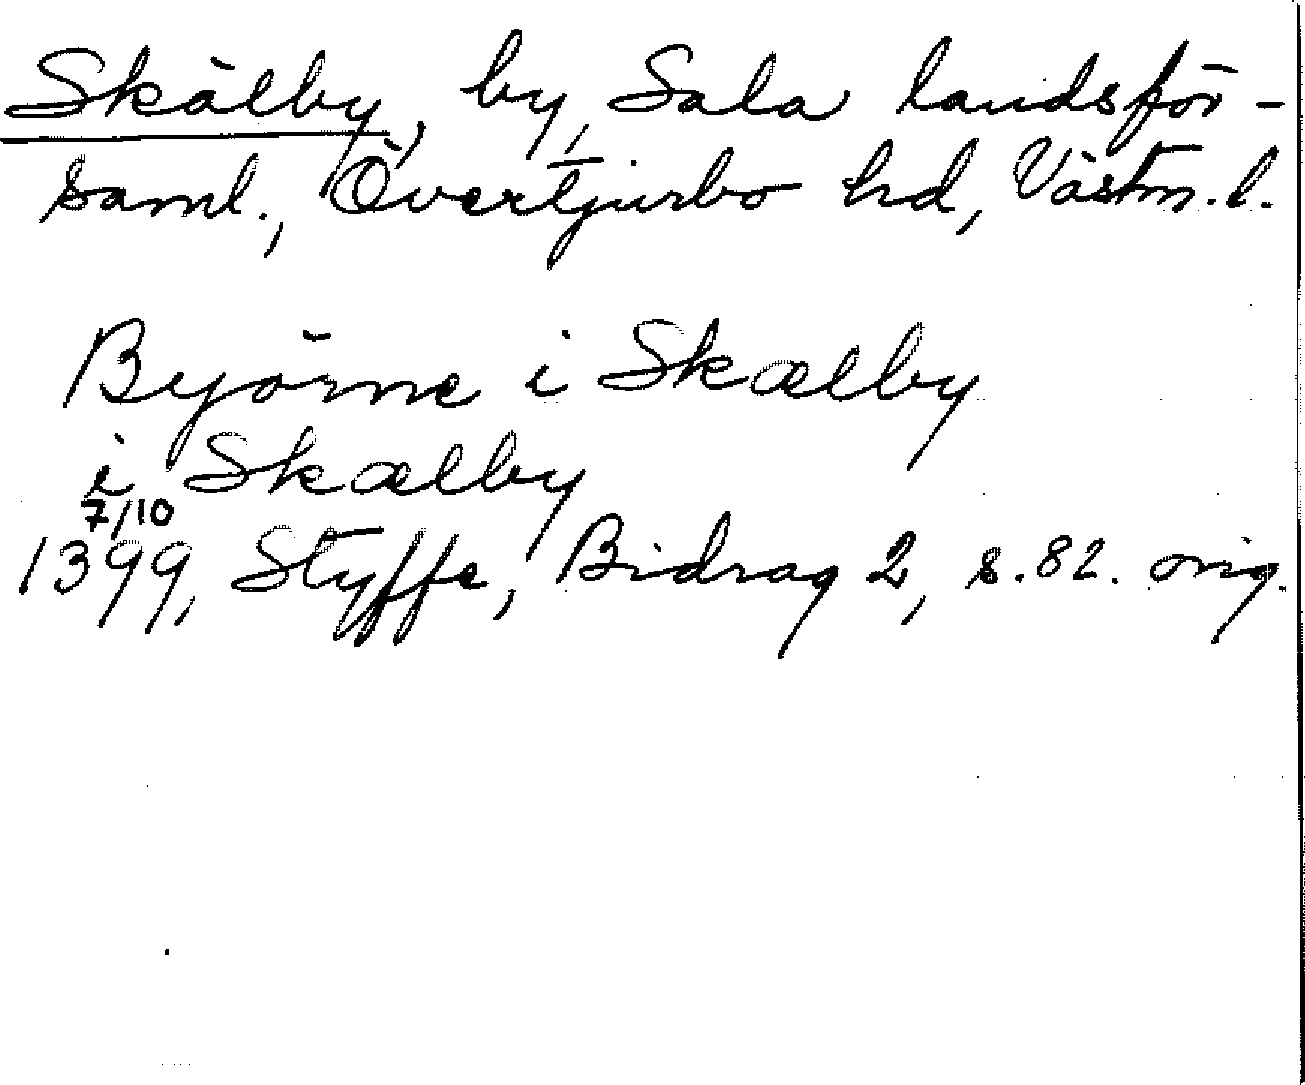 Skälby, by, Sala landsför-
saml., Övertjurbo hd, Västm. l.
Byörne i Skælby
i Skælby
7/10
1399, Styffe, Bidrag 2, s. 82. orig.